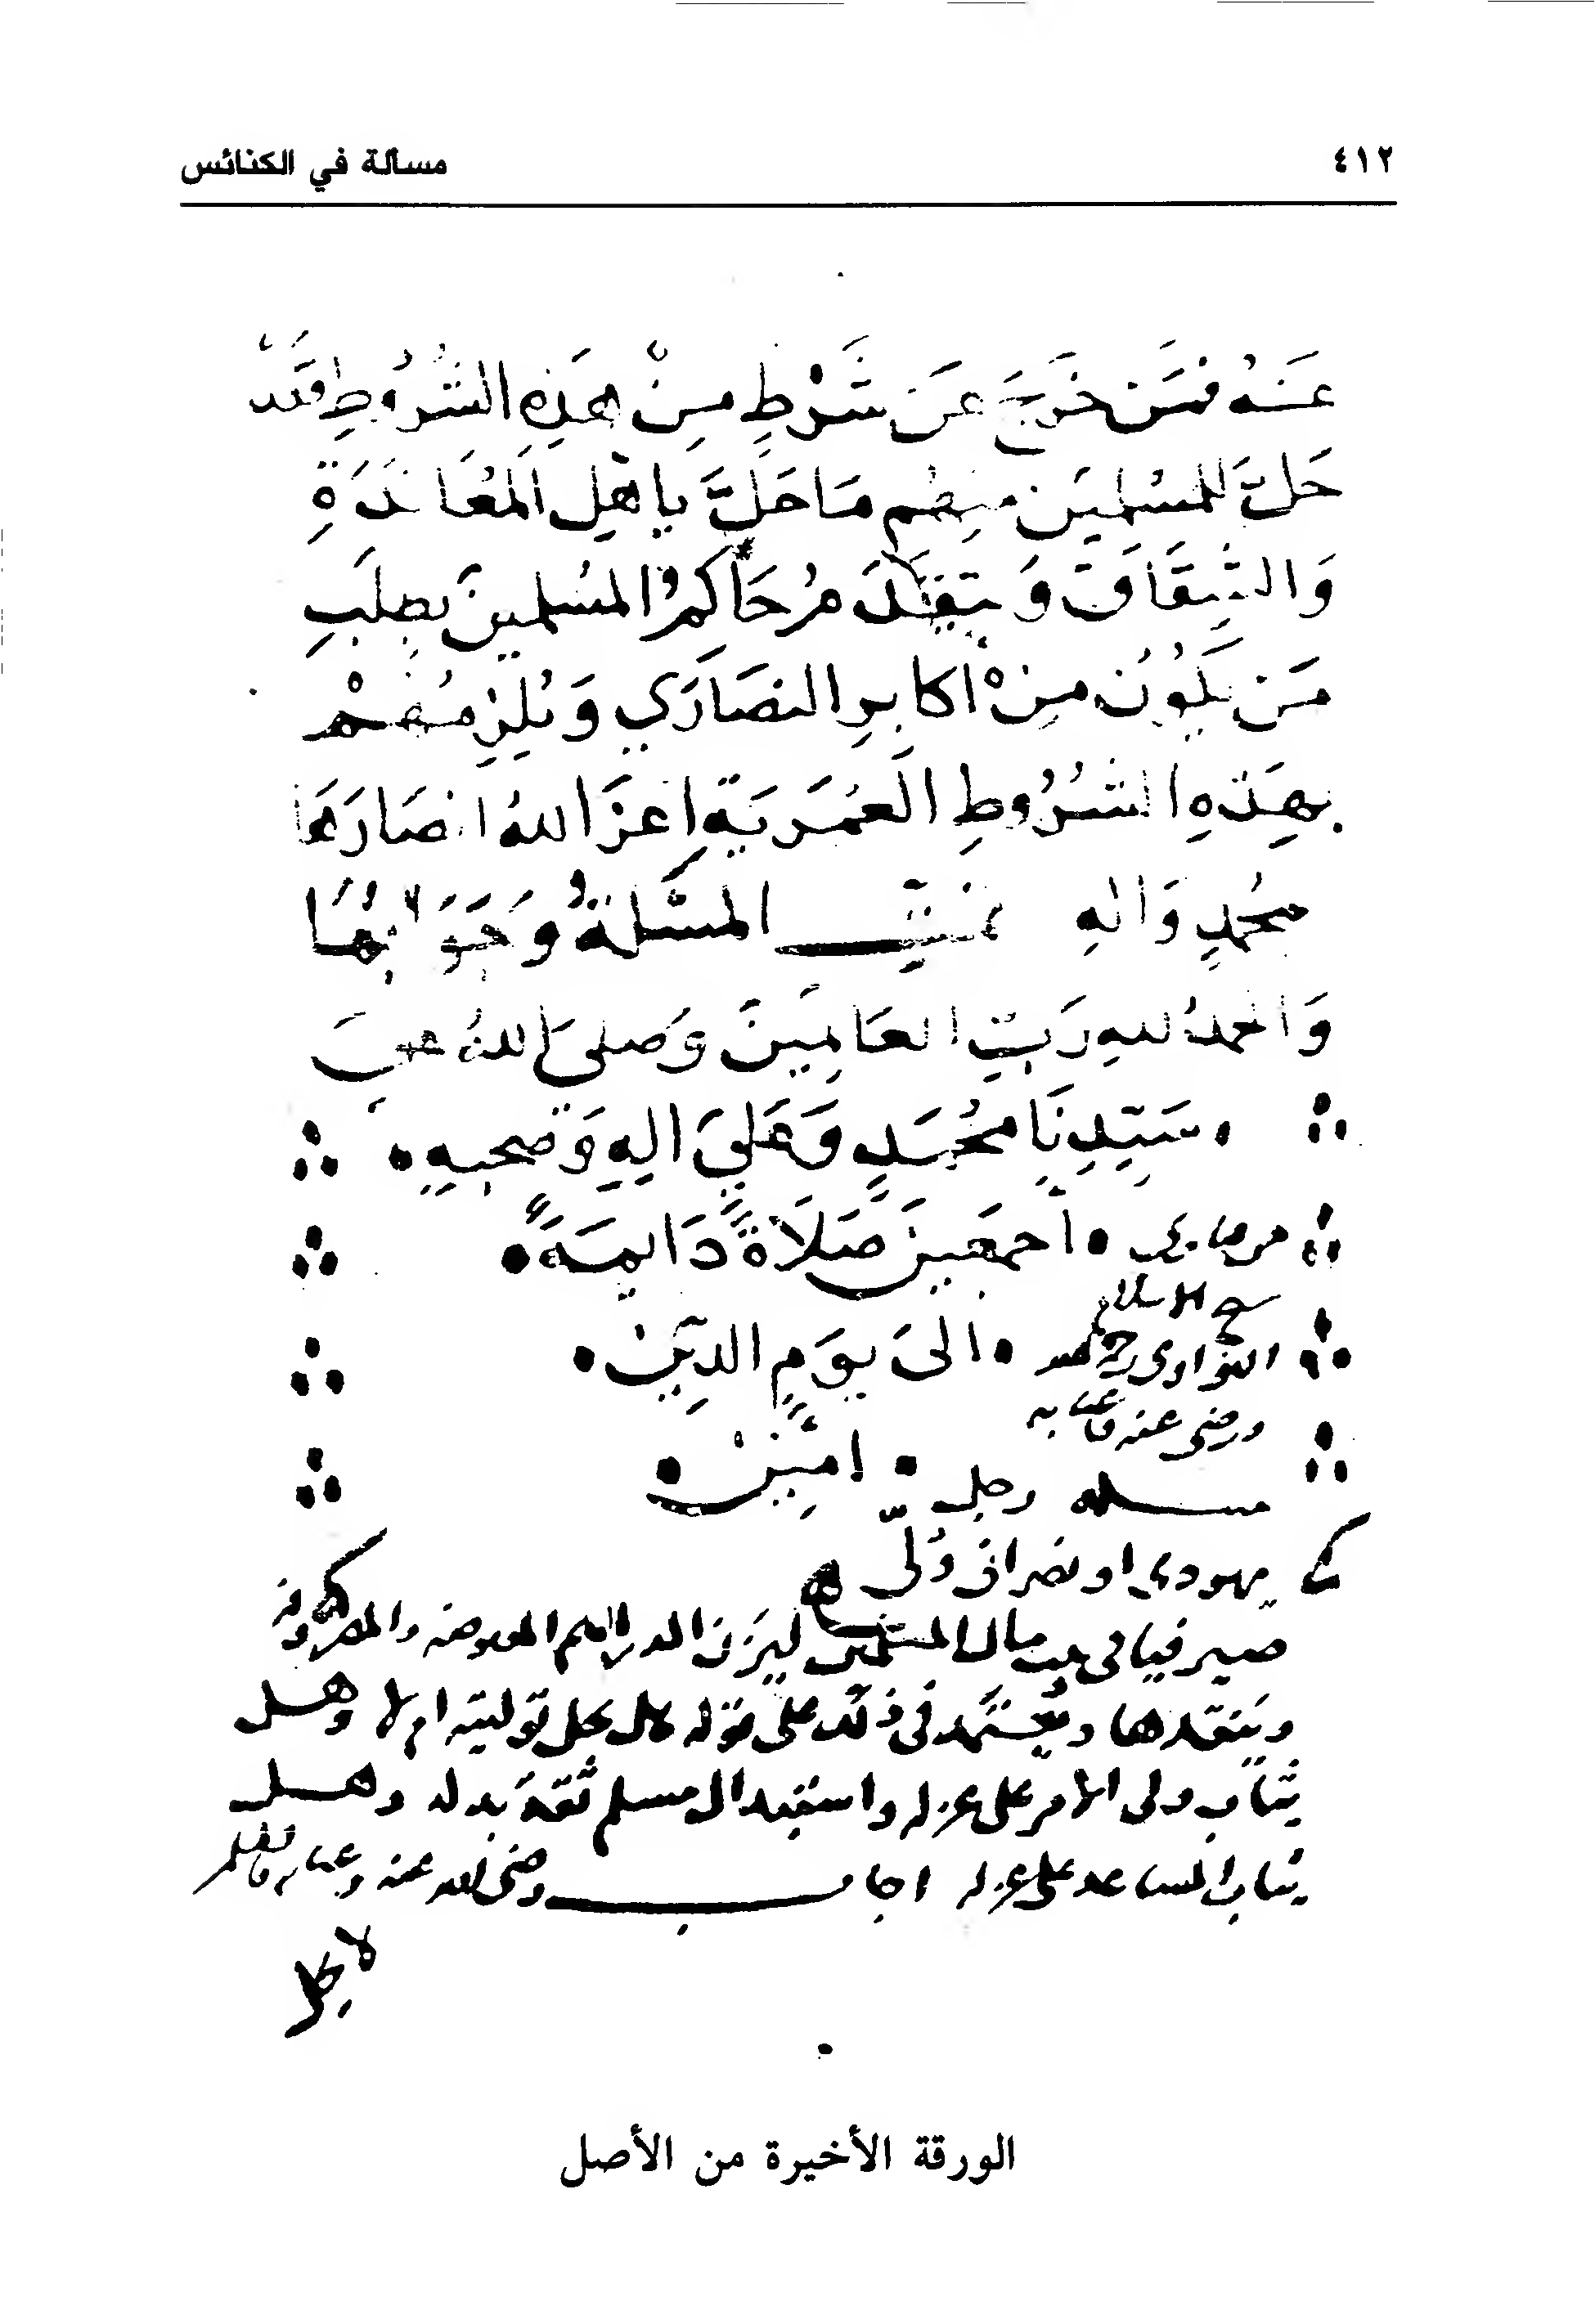 ٤١٢
مسألة في الكنائس
عَنهُ فمَن خَرَجَ عَن شَرْطٍ مِنْ هَذِهِ الشُرُوطِ فقَدْ
حَلَّ للمسُلمِينَ منِهُم مَا حَلَّ بِاهْلِ المعَانَدَةِ
وَالشِقَاقِ وَيتقَدَمُ حَاكمُ المسُلمينَ بطِلَبِ
مَن يَكُونُ مِنْ اكابرِ النصَارَي وَيُلزِمُهُمْ
بهِذِهِ الشُرُوطِ العُمَريَةِ اعَزَ اللهُ انصَارَهَا
بمحُمدٍ وَالهِ تمت المسئلةُ وَجَوَابُهَا
وَالحمدُ للهِ رَبِ العَالمِينَ وَصَلىَ اللهُ علىَ
سَيّدِنَا محُمَدٍ وَعَليَ الِهِ وَصَحبِهِ
اجمعَينَ صَلَاةً دَايمَةً
من فتاوى
شيخ الاسلام
الىَ يوَمِ الدِينِ
النواوى رحمه الله
ورضى عنه وعنا به
امِّينْ
مسئلة رجل
يهودى او نصرانى وُلّى
صيرفيا فى بيت مال المسلمين ليَزِن الدراهم المقبوضة والمصروفة
وينقدها ويُعتَمد فى ذلك على قوله هل يحل توليته ام لا وهل
يُثاب ولى الامر على عزله واستبدال مسلم ثقة بدله وهل
يثاب المساعد على عزله اجاب رضى الله عنه وعنا به
لا يحل
الورقة الأخيرة من الأصل